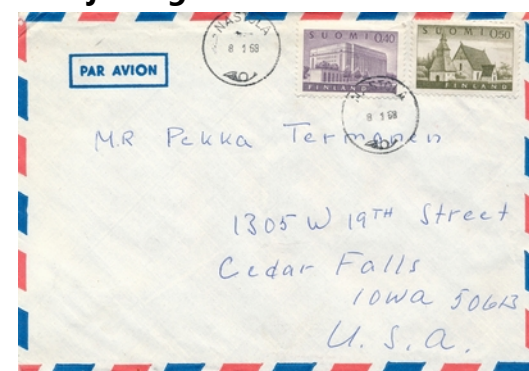 NASTOLA
8 1 68
SUOMI 0,40
FINLAND
SUOMI 0,50
FINLAND
PAR AVION
8 1 68
MR Pekka Termonen
1305 W 19TH Street
Cedar Falls
IOWA 50613
U.S.A.